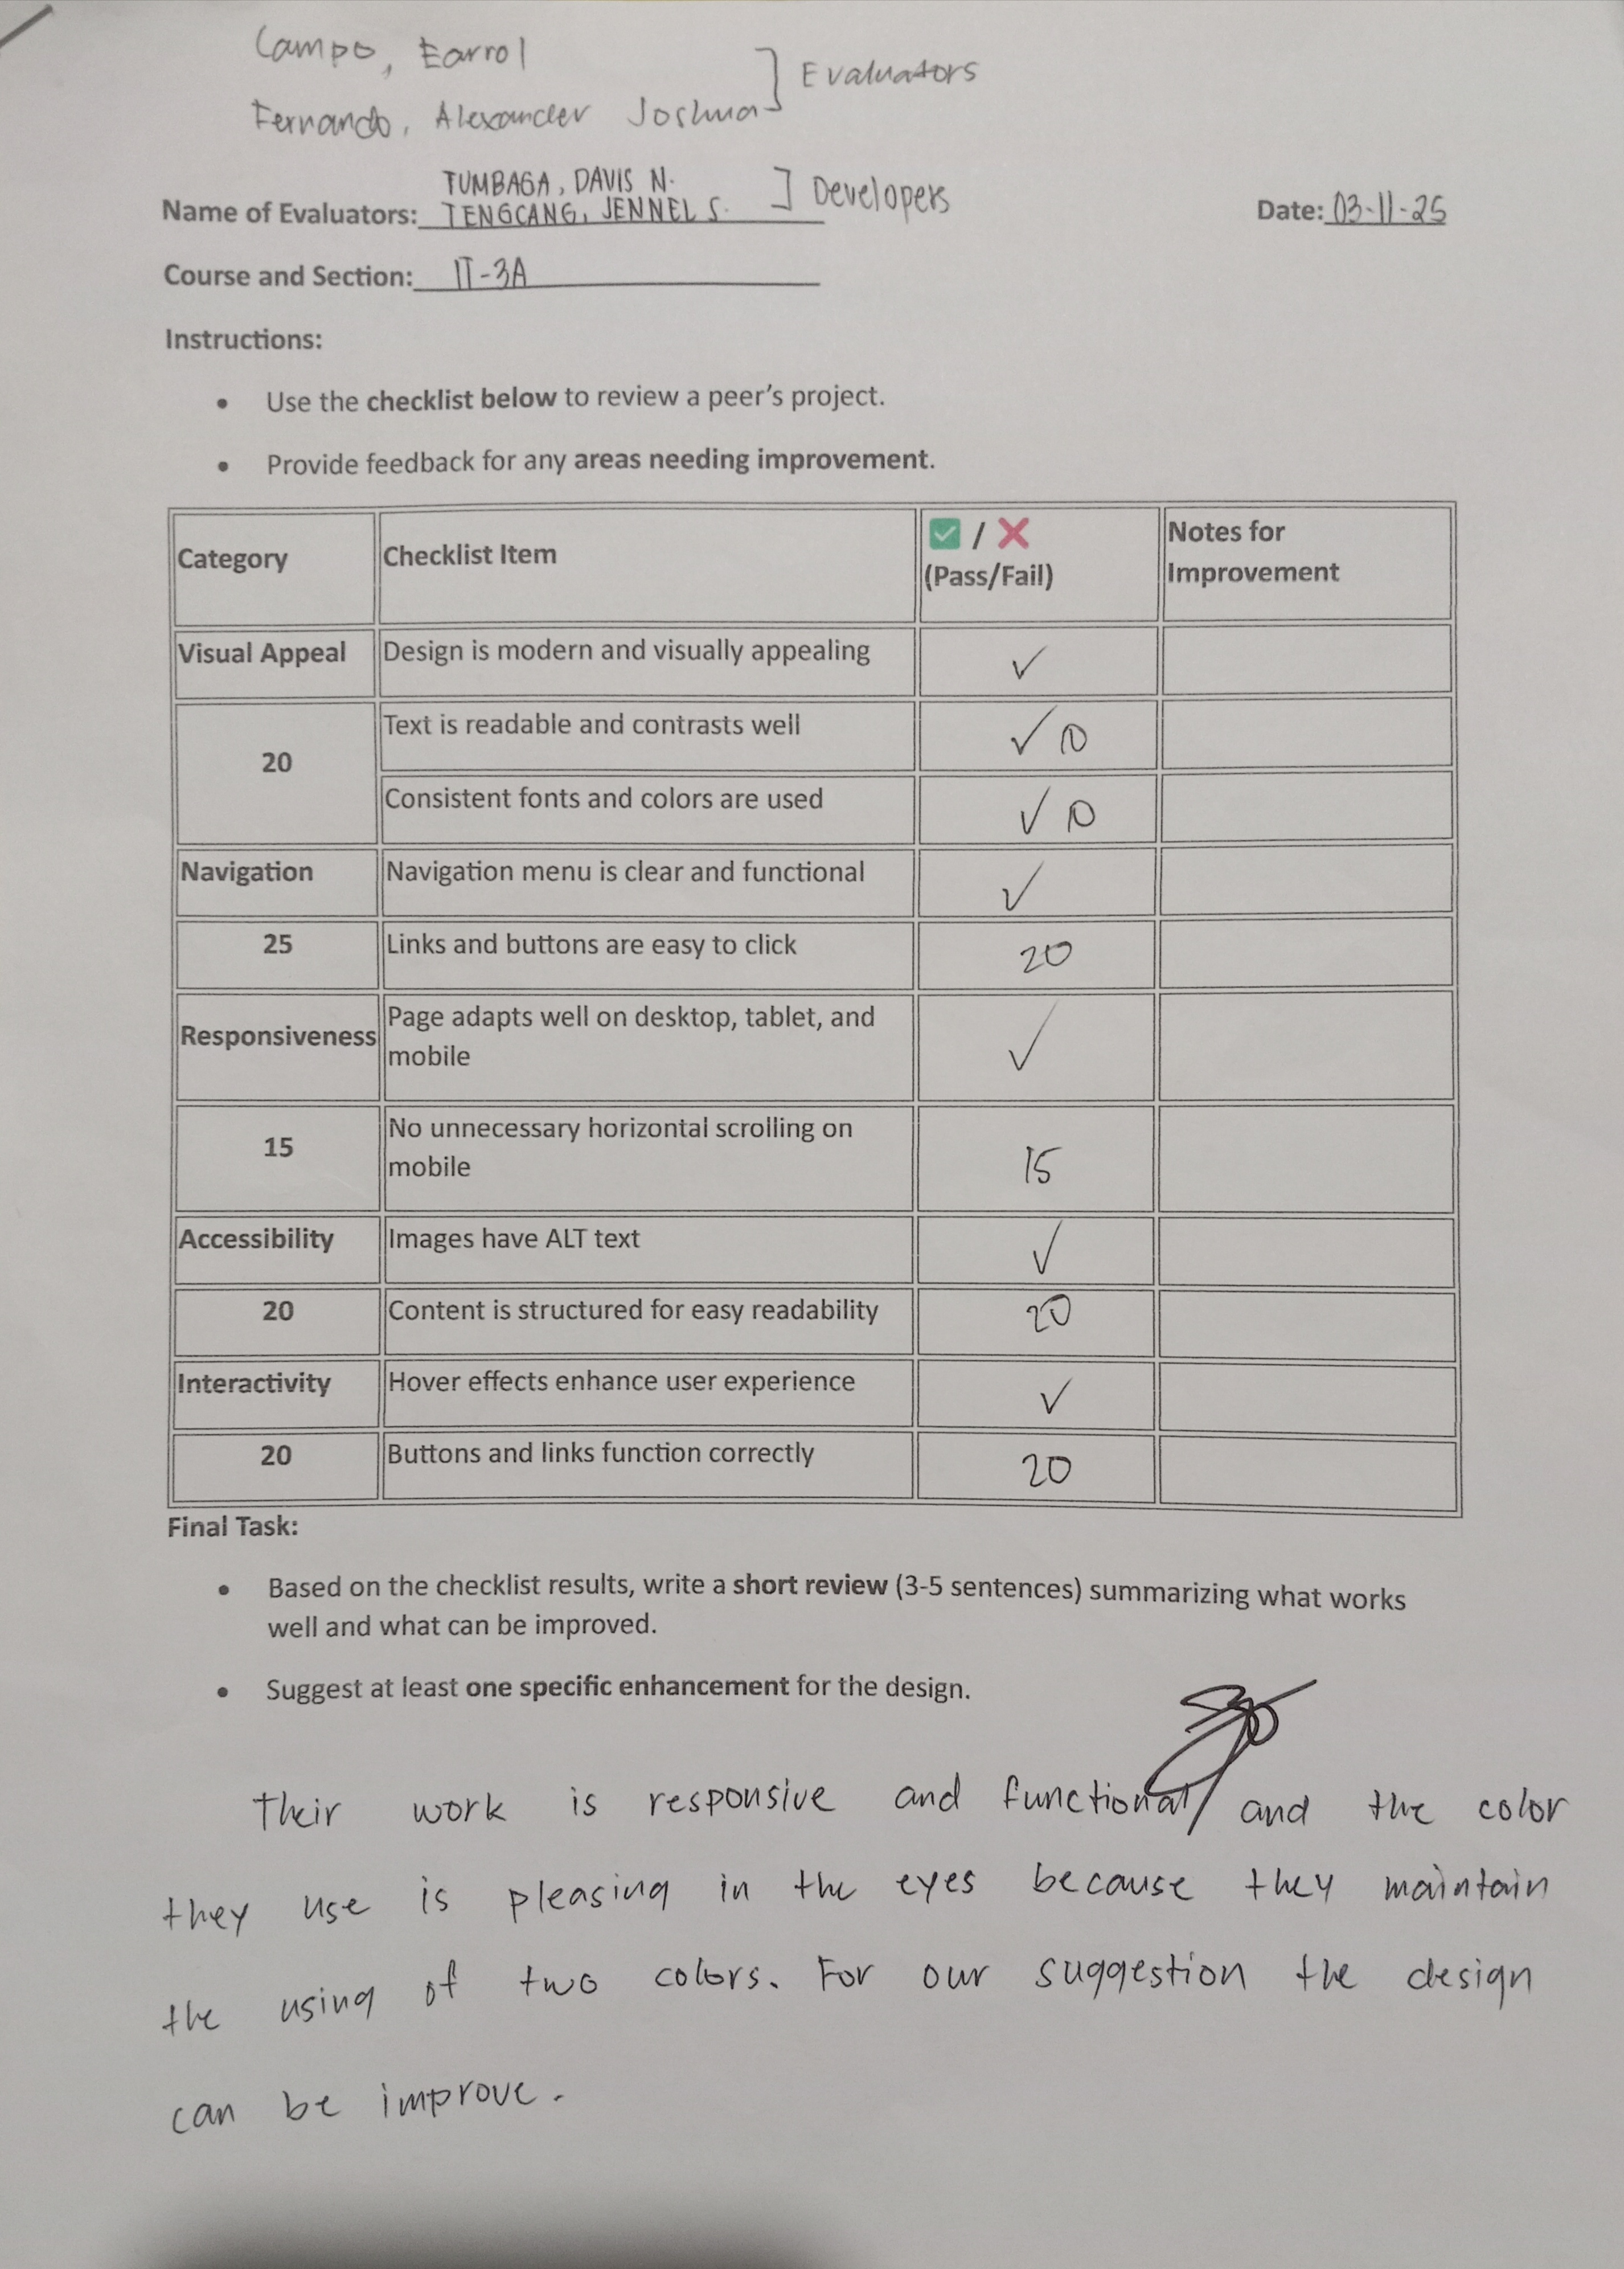 Campo, Earrol
Fernando, Alexander Joshua ] Evaluators
TUMBAGA, DAVIS N.
Name of Evaluators: TENGCANG, JENNEL S. ] Developers Date: 03-11-25
Course and Section: IT-3A
Instructions:
• Use the checklist below to review a peer's project.
• Provide feedback for any areas needing improvement.
Category Checklist Item ✅ / ❌ (Pass/Fail) Notes for Improvement
Visual Appeal Design is modern and visually appealing ✓
20 Text is readable and contrasts well ✓ 10
Consistent fonts and colors are used ✓ 10
Navigation Navigation menu is clear and functional ✓
25 Links and buttons are easy to click 20
Responsiveness Page adapts well on desktop, tablet, and mobile ✓
15 No unnecessary horizontal scrolling on mobile 15
Accessibility Images have ALT text ✓
20 Content is structured for easy readability 20
Interactivity Hover effects enhance user experience ✓
20 Buttons and links function correctly 20
Final Task:
• Based on the checklist results, write a short review (3-5 sentences) summarizing what works
well and what can be improved.
• Suggest at least one specific enhancement for the design.
Their work is responsive and functional and the color
they use is pleasing in the eyes because they maintain
the using of two colors. For our suggestion the design
can be improve.